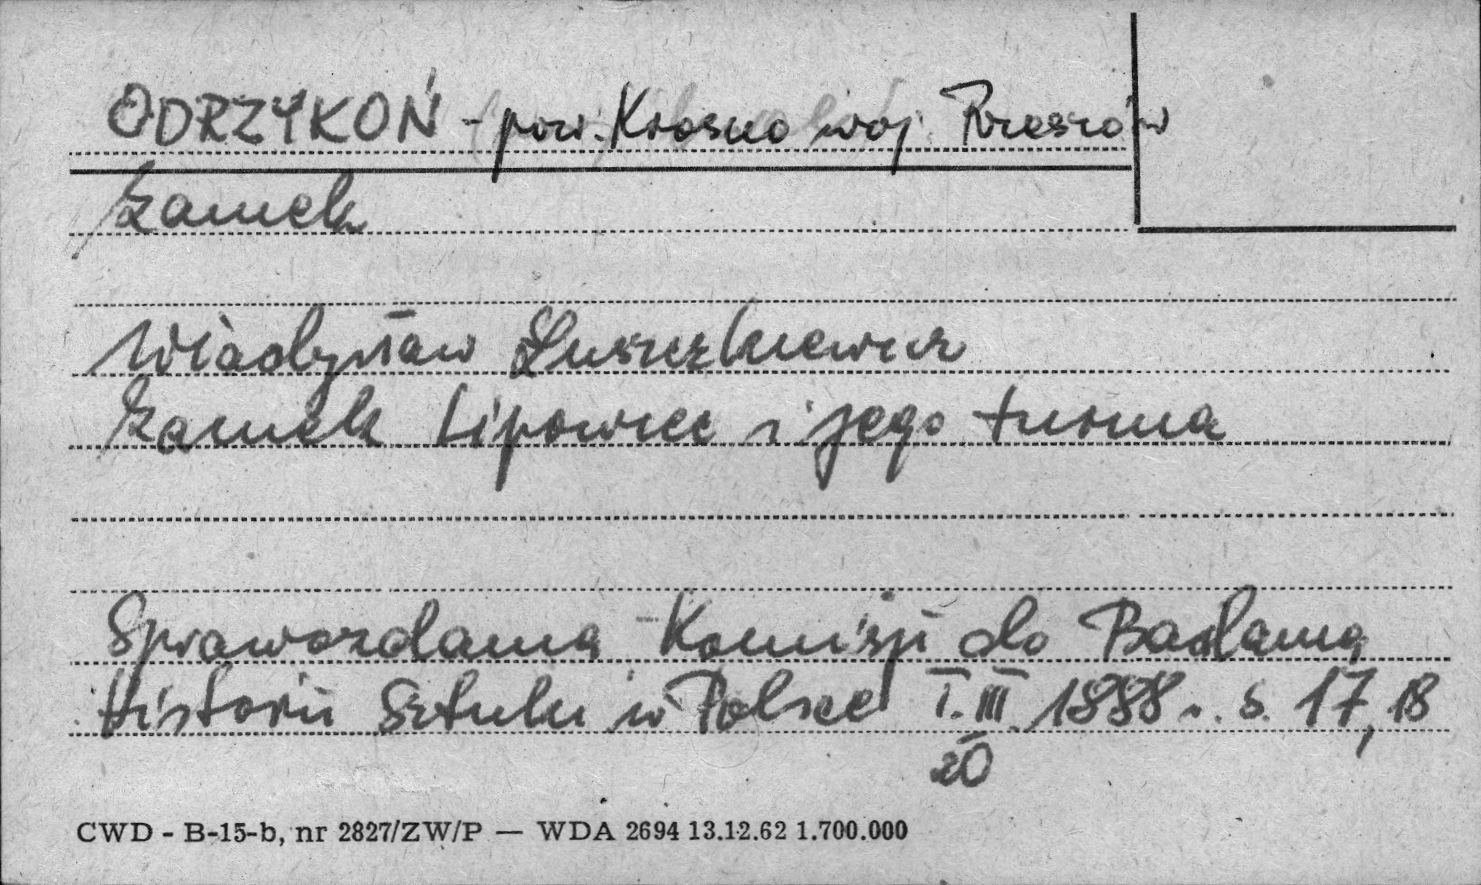 ODRZYKOŃ - pow. Krosno woj. Rzeszów
Zamek
Władysław Łuszczkiewicz
Zamek Lipowiec i jego turma
Sprawozdania Komisji do Badania
Historii Sztuki w Polsce T. III. 1888 r. s. 17, 18
20
CWD - B-15-b, nr 2827/ZW/P — WDA 2694 13.12.62 1.700.000